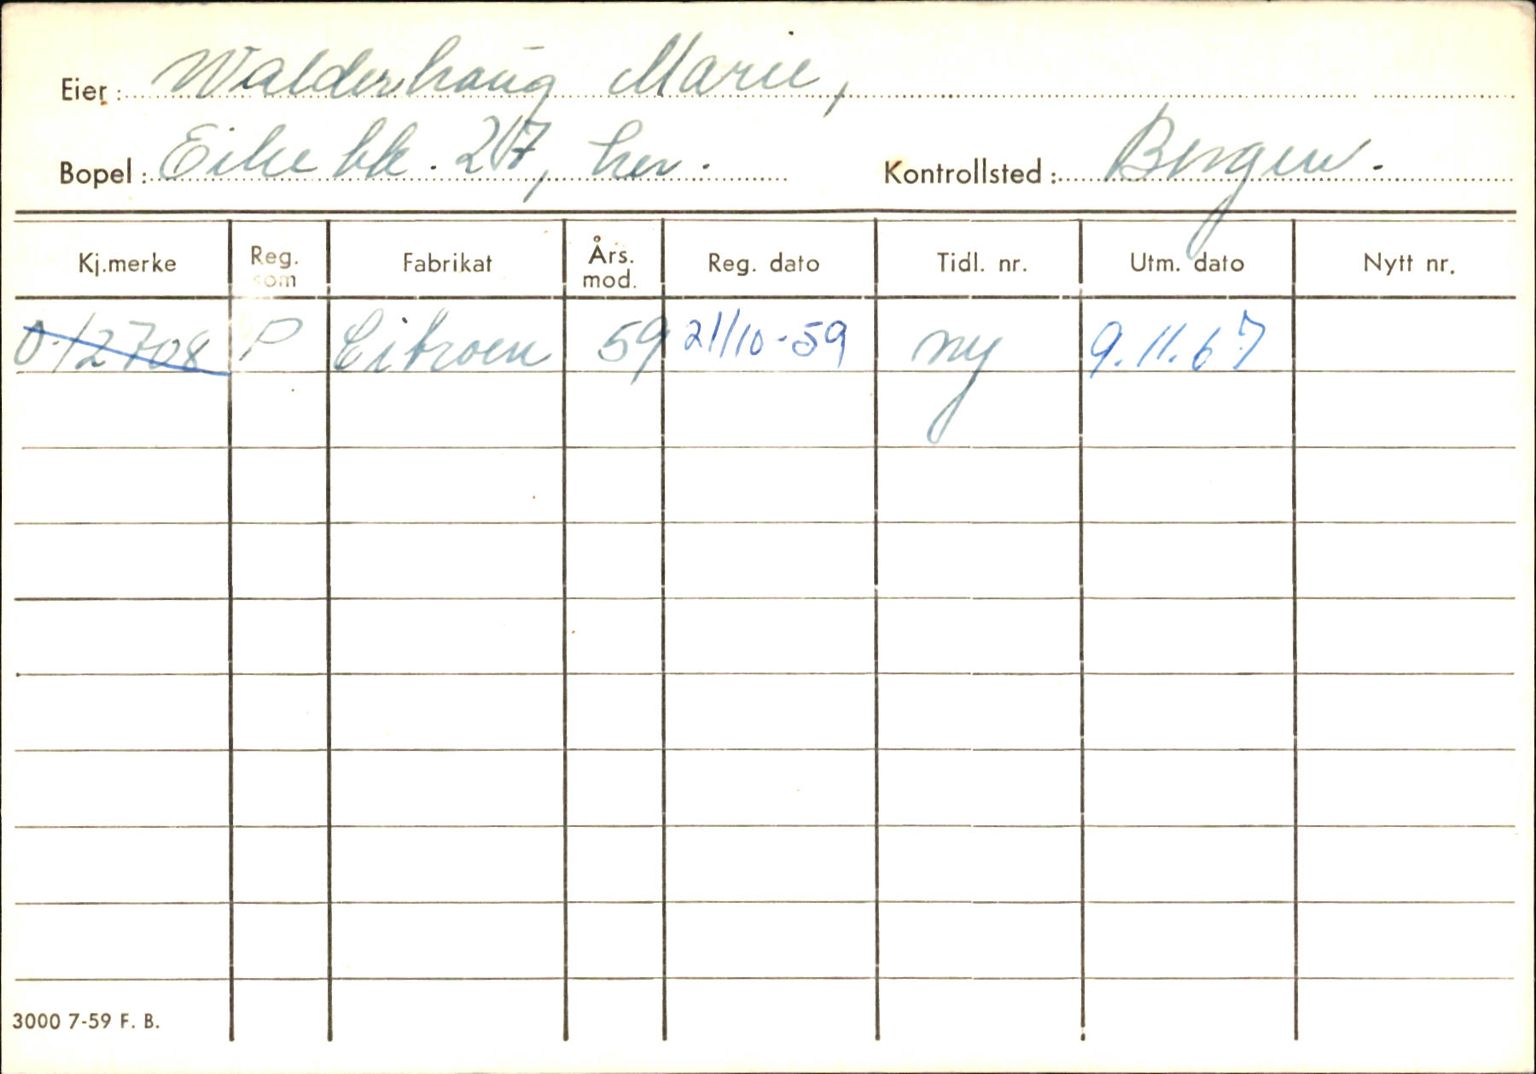 Eier: Walderhaug Marie,
Bopel: Eike bk. 27, her. Kontrollsted: Bergen.
Kj.merke Reg. som Fabrikat Års. mod. Reg. dato Tidl. nr. Utm. dato Nytt nr.
O-12708 P Citroen 59 21/10-59 ny 9.11.67
3000 7-59 F. B.